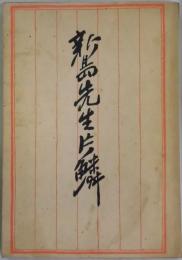 新島先生片鱗